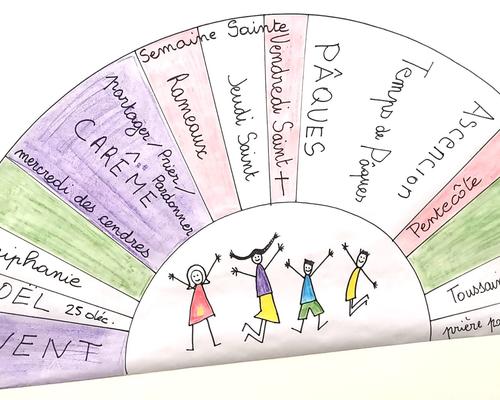 VENT
OËL 25 déc.
iphanie
mercredi des cendres
CARÊME
partager/Prier/
Pardonner
Semaine Sainte
Rameaux
Jeudi Saint
Vendredi Saint
PÂQUES
Temps de Pâques
Ascencion
Pentecôte
Toussain
prière po